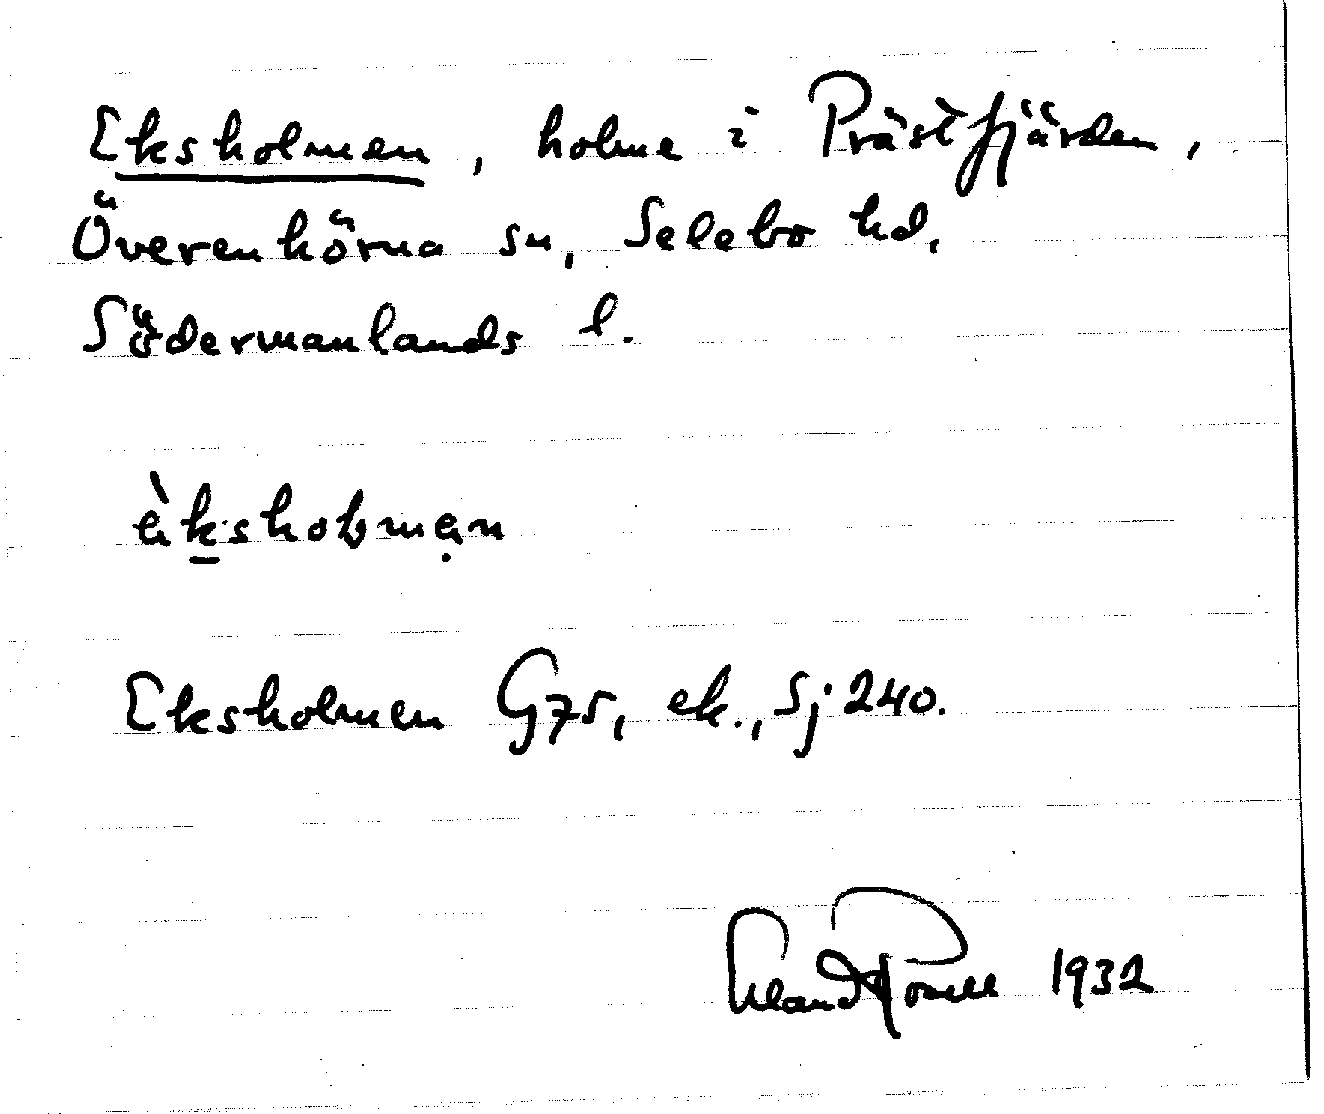 Eksholmen, holme i Prästfjärden,
Överenhörna sn, Selebo hd,
Södermanlands l.
èksholmen
Eksholmen G75, ek., Sj 240.
1932